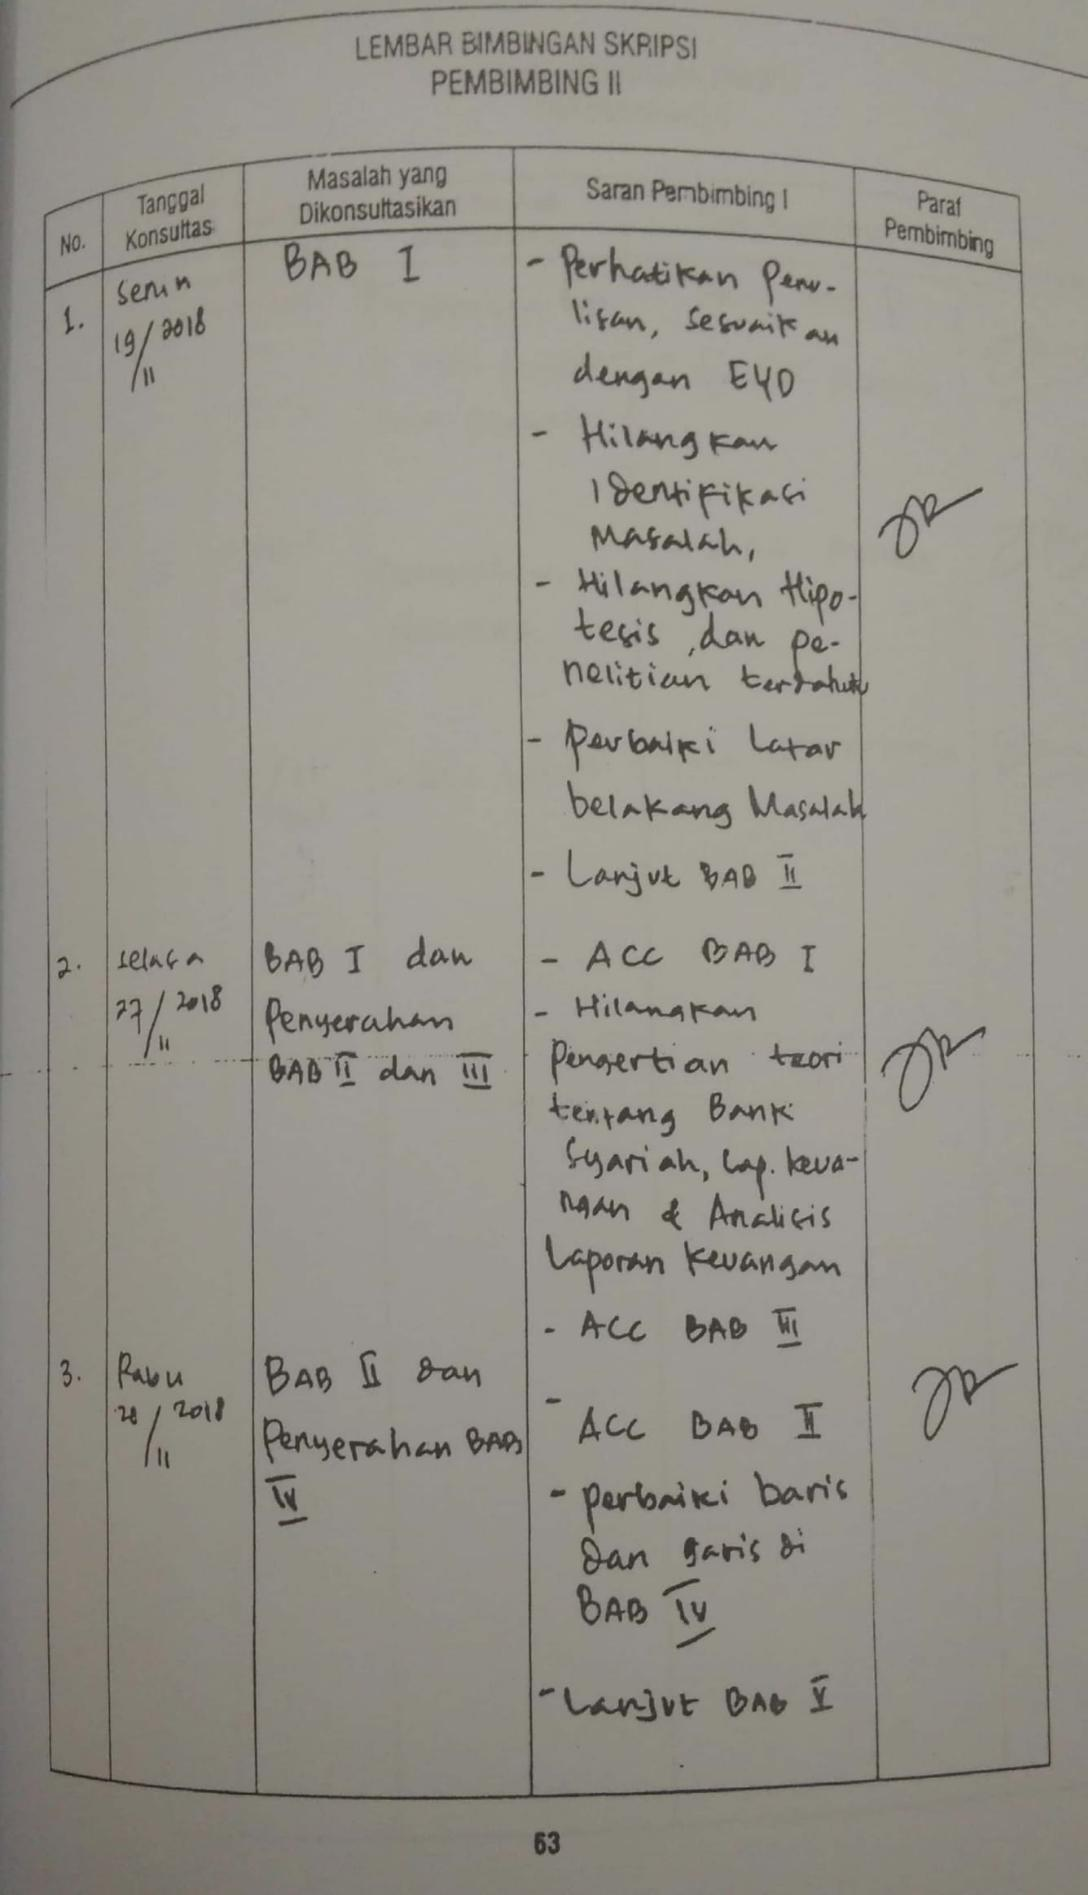 LEMBAR BIMBINGAN SKRIPSI
PEMBIMBING II
No.
Tanggal
Konsultas
Masalah yang
Dikonsultasikan
Saran Pembimbing I
Paraf
Pembimbing
1.
Senin
19/11 2018
BAB I
- Perhatikan Penu-
lisan, Sesuaikan
dengan EYD
- Hilangkan
Identifikasi
Masalah,
- Hilangkan Hipo-
tesis, dan pe-
nelitian terdahulu
- Perbaiki Latar
belakang Masalah
- Lanjut BAB II
2.
Selasa
27/11 2018
BAB I dan
Penyerahan
BAB II dan III
- ACC BAB I
- Hilangkan
Pengertian teori
tentang Bank
Syariah, Lap. keua-
ngan & Analisis
Laporan Keuangan
- ACC BAB III
3.
Rabu
28/11 2018
BAB II dan
Penyerahan BAB
IV
- ACC BAB II
- perbaiki baris
dan garis di
BAB IV
- Lanjut BAB V
63